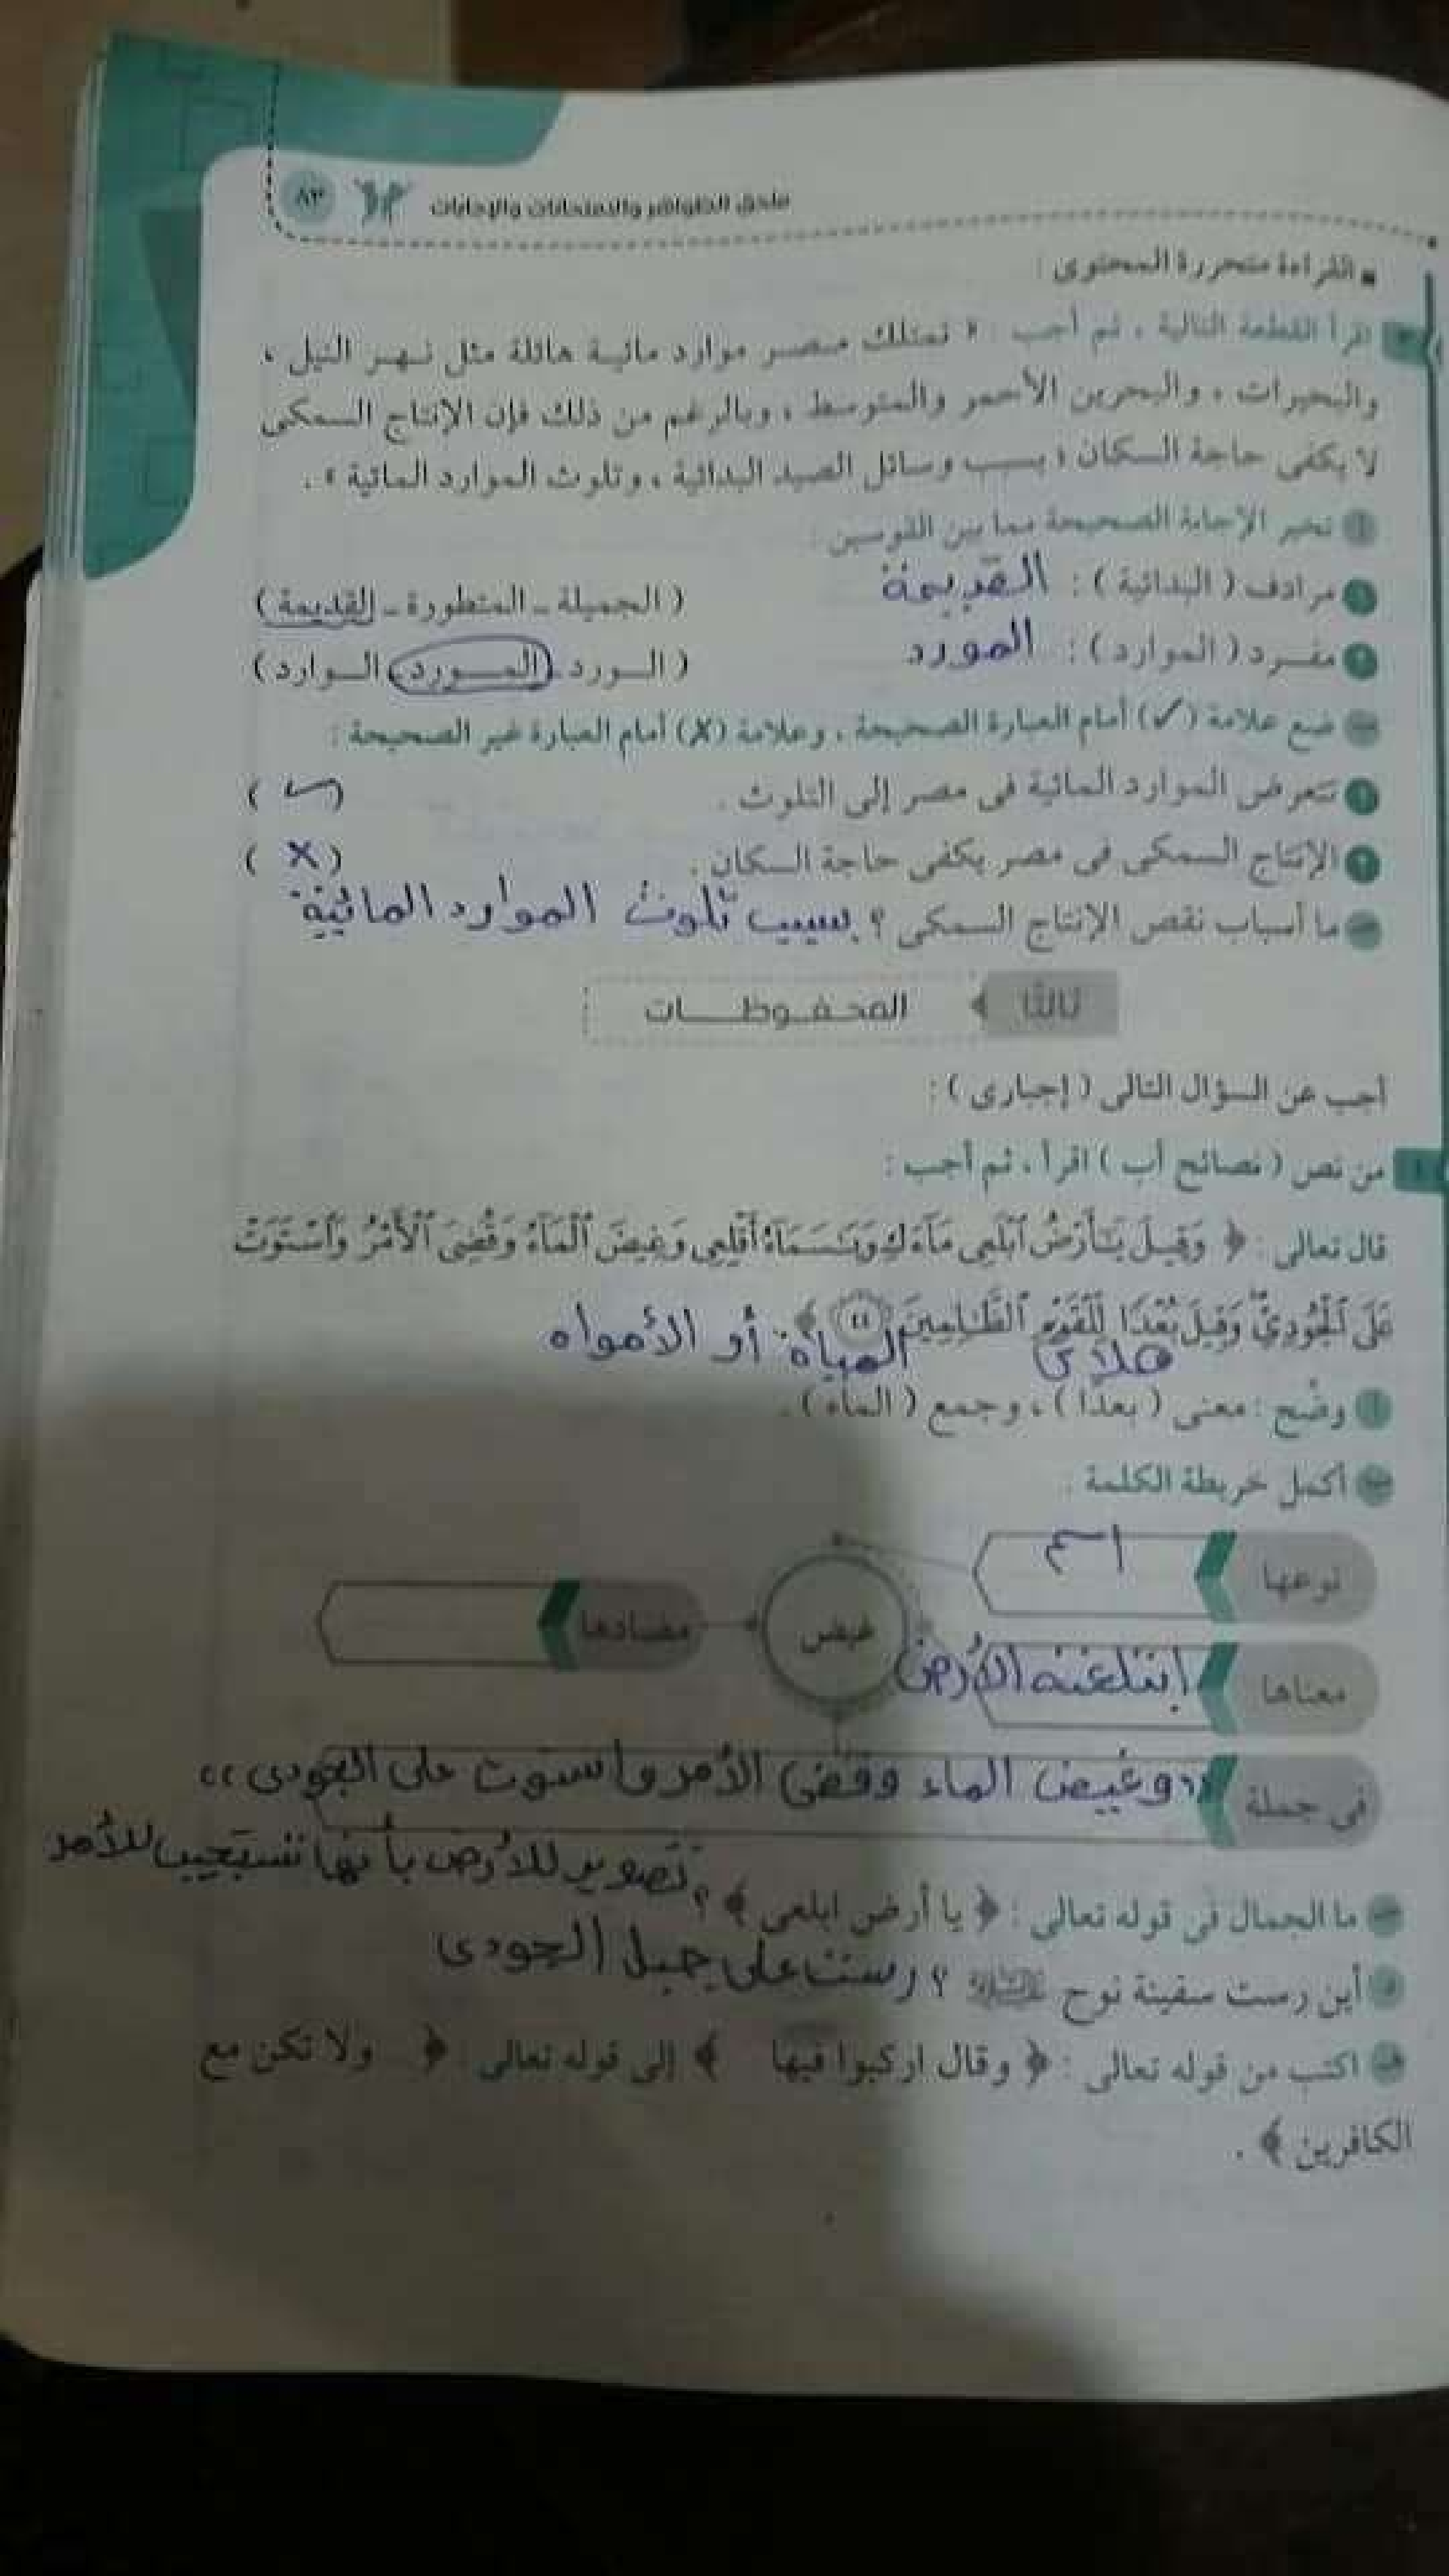 ملحق الظواهر والامتحانات والإجابات ٨٣
▪ القراءة متحررة المحتوى :
اقرأ القطعة التالية ، ثم أجب : « تمتلك مصر موارد مائية هائلة مثل نهر النيل ،
والبحيرات ، والبحرين الأحمر والمتوسط ، وبالرغم من ذلك فإن الإنتاج السمكى
لا يكفى حاجة السكان ؛ بسبب وسائل الصيد البدائية ، وتلوث الموارد المائية » .
أ تخير الإجابة الصحيحة مما بين القوسين :
١ مرادف ( البدائية ) : القديمة ( الجميلة - المتطورة - القديمة )
٢ مفرد ( الموارد ) : المورد ( الورد - المورد - الوارد )
ب ضع علامة (✓) أمام العبارة الصحيحة ، وعلامة (X) أمام العبارة غير الصحيحة :
١ تتعرض الموارد المائية فى مصر إلى التلوث . ( ✓ )
٢ الإنتاج السمكى فى مصر يكفى حاجة السكان . ( X )
جـ ما أسباب نقص الإنتاج السمكى ؟ بسبب تلوث الموارد المائية
ثالثًا المحفوظات
أجب عن السؤال التالى ( إجبارى ) :
من نص ( نصائح أب ) اقرأ ، ثم أجب :
قال تعالى : ﴿ وَقِيلَ يَٰٓأَرْضُ ٱبْلَعِى مَآءَكِ وَيَٰسَمَآءُ أَقْلِعِى وَغِيضَ ٱلْمَآءُ وَقُضِىَ ٱلْأَمْرُ وَٱسْتَوَتْ
عَلَى ٱلْجُودِىِّ وَقِيلَ بُعْدًا لِّلْقَوْمِ ٱلظَّٰلِمِينَ ٤٤ ﴾ .
هلاك المياة أو الأمواه
أ وضح : معنى ( بعدًا ) ، وجمع ( الماء ) .
ب أكمل خريطة الكلمة .
نوعها اسم
غيض مضادها
معناها ابتلعته الأرض
فى جملة «وغيض الماء وقضى الأمر واستوت على الجودى»
تصوير للأرض بأنها تستجيب للأمر
جـ ما الجمال فى قوله تعالى : ﴿ يا أرض ابلعى ﴾ ؟
د أين رست سفينة نوح ؟ رست على جبل الجودى
هـ اكتب من قوله تعالى : ﴿ وقال اركبوا فيها ﴾ إلى قوله تعالى : ﴿ ولا تكن مع
الكافرين ﴾ .